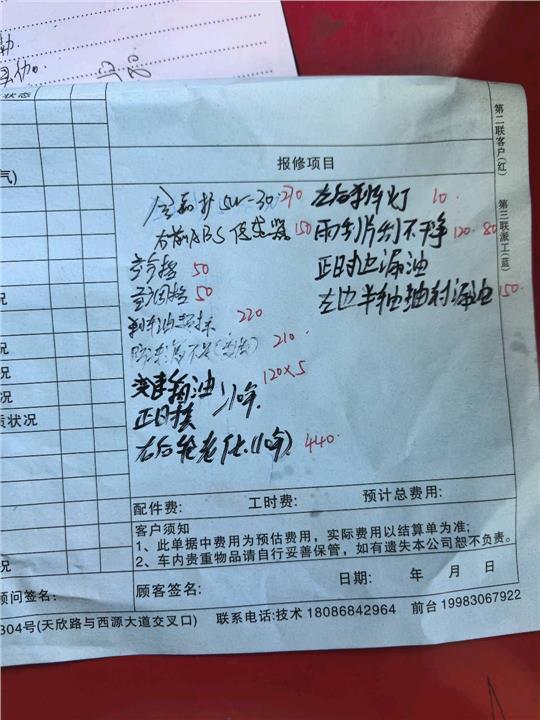 状态
第二联客户(红)
第三联派工(蓝)
气)
报修项目
5W-30 270 左后刹车灯 10
右前ABS传感器 150 雨刮片刮不净 120 80
空 50 正时边漏油
空调格 50 左边半轴抽利漏油 150
刹车油 220
210
变速箱油 120×5
正时
左后轮老化(1个) 440
况
况
况
质状况
况
况
况
配件费: 工时费: 预计总费用:
客户须知
1、此单据中费用为预估费用,实际费用以结算单为准;
2、车内贵重物品请自行妥善保管,如有遗失本公司恕不负责。
顾问签名: 顾客签名: 日期: 年 月 日
304号(天欣路与西源大道交叉口) 联系电话:技术 18086842964 前台 19983067922